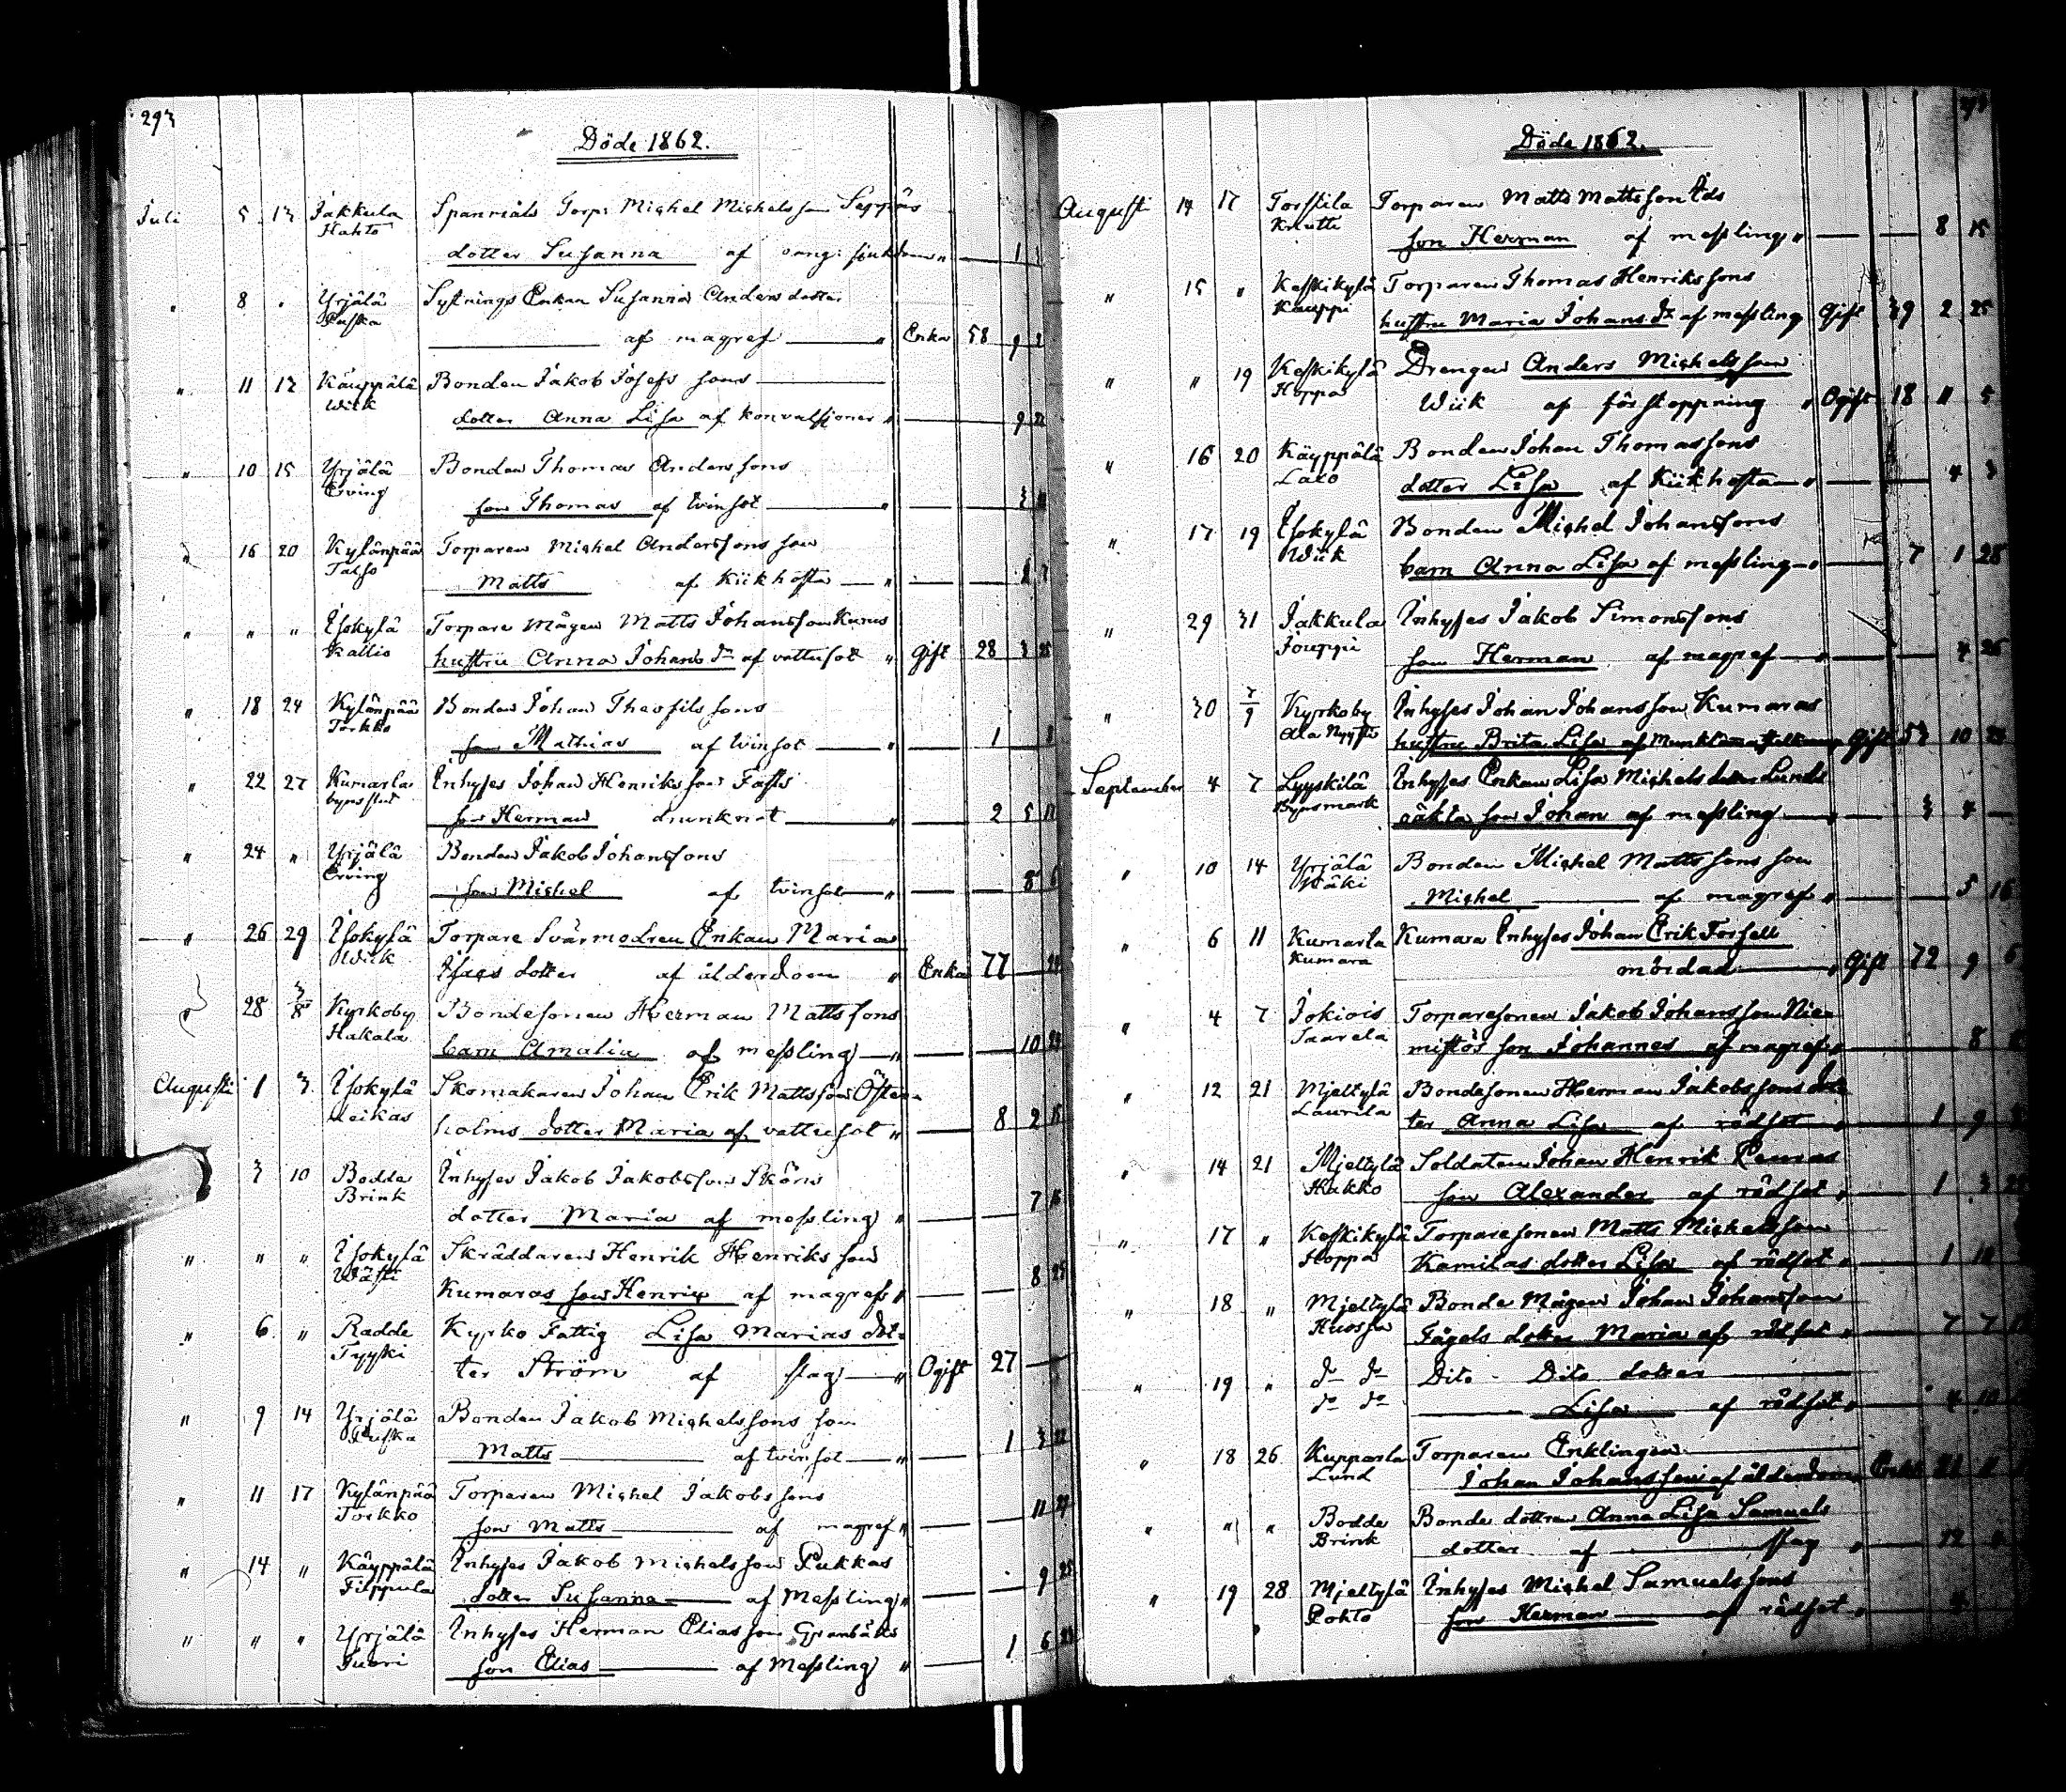 293
Döde 1862.
Juli 5 13 Jakkula Spanmåls Torp: Michel Michelsson Seppäs
Hahto
dotter Susanna af sjukdom " 1
" 8 " Yrjälä Sytnings Enkan Susanna Anders dotter
Puska
af magref " Enka 58 9 2
" 11 13 Käuppälä Bonden Jakob Josefs sons
Wiik
dotter Anna Lisa af konvulsioner " 9 22
" 10 15 Yrjälä Bonden Thomas Anders sons
Erving
son Thomas af tvinsot " 3
" 16 20 Kylänpää Torparen Michel Anderssons son
Talso
Matts af Kikhosta "
" " " Isokylä Torpare Mågen Matts Johansson Kurus
Kallio
hustru Anna Johans dr af vattusot " Gift 28 3 25
" 18 24 Kylänpää Bonden Johan Theofils sons
Torkko
son Mathias af tvinsot " 1
" 22 27 Kumarla Inhyses Johan Henriksson Fasts
byns
son Herman drunknat " 2 5 17
" 24 " Yrjälä Bonden Jakob Johanssons
Erving
son Michel af tvinsot " 8
" 26 29 Isokylä Torpare Svärmodren Enkan Maria
Wiik
Isacs dotter af ålderdom " Enka 77
" 28 3/8 Kyrkoby Bondesonen Herman Mattssons
Hakala
barn Amalia af messling " 10 23
Augusti 1 3 Isokylä Skomakaren Johan Erik Mattsson Östen-
Leikas
holms dotter Maria af vattusot " 8 2 15
3 10 Bodde Inhyses Jakob Jakobsson Sköns
Brink
dotter Maria af messling " 7 16
" " " Isokylä Skräddaren Henrik Henriks son
Wästi
Kumaras son Henrik af magref " 8 25
" 6 " Radde Kyrko Fattig Lisa Marias dot-
Tyyski
ter Ström af slag " Ogift 27
" 9 14 Yrjälä Bonden Jakob Michelssons son
Puska
Matts af tvinsot " 1 3 22
" 11 17 Kylänpää Torparen Michel Jakobs sons
Torkko
son Matts af magref " 11 27
" 14 " Käyppälä Inhyses Jakob Michelsson Pukkas
Filppula
dotter Susanna af Messling " 9 25
" " " Yrjälä Inhyses Herman Eliasson Granbäcks
Tuori
son Elias af Messling " 1 6 23
Döde 1862.
Augusti 14 17 Torstila Torparen Matts Mattsson
Knutti
son Herman af messling " 8 15
" 15 " Keskikylä Torparen Thomas Henrikssons
Kauppi
hustru Maria Johans dr af messling Gift 39 2 25
" " 19 Keskikylä Drengen Anders Michelsson
Hoppa
Wiik af förstoppning " Ogift 18 " 5
" 16 20 Käyppälä Bonden Johan Thomassons
Laxo
dotter Lisa af Kikhosta " 4 3
" 17 19 Isokylä Bonden Michel Johanssons
Wiik
barn Anna Lisa af messling " 7 1 28
" 29 31 Jakkula Inhyses Jakob Simonssons
Jouppi
son Herman af magref " 4 26
" 30 7/9 Kyrkoby Inhyses Johan Johansson Kumaras
Ala Nyysti
hustru Brita Lisa af Gift 53 10 23
September 4 7 Lyyskilä Inhyses Enkan Lisa Michels dotter Lunds
Bynsmark
oäkta son Johan af messling " 3 4
" 10 14 Yrjälä Bonden Michel Mattssons son
Wäki
Michel af magref " 5 16
" 6 11 Kumarla Kumara Inhyses Johan Erik Forsell
Kumara
mördad " Gift 72 9 6
" 4 7 Jokiois Torparesonen Jakob Johansson Nie-
Taarela
mistös son Johannes af magref " 8
" 12 21 Mjeltylä Bondesonen Herman Jakobssons dot-
Laurila
ter Anna Lisa af rödsot " 1 9
" 14 21 Mjeltylä Soldaten Johan Henrik Peuras
Hakko
son Alexander af rödsot " 1 3
" 17 " Keskikylä Torparesonen Matts Michelsson
Hoppa
Kamilas dotter Lisa af rödsot " 1 10
" 18 " Mjeltylä Bonde Mågen Johan Johansson
Huossa
Fågels dotter Maria af rödsot " 7 7
" 19 " do do Dito Dito dotter
do do
Lisa af rödsot " 4 10
" 18 26 Kupparla Torparen Enklingen
Lund
Johan Johansson af ålderdom
" " " Bodde Bonde dottren Anna Lisa Samuels
Brink
dotter af slag "
" 19 28 Mjeltylä Inhyses Michel Samuelssons
Pohto
son Herman af rödsot " 4